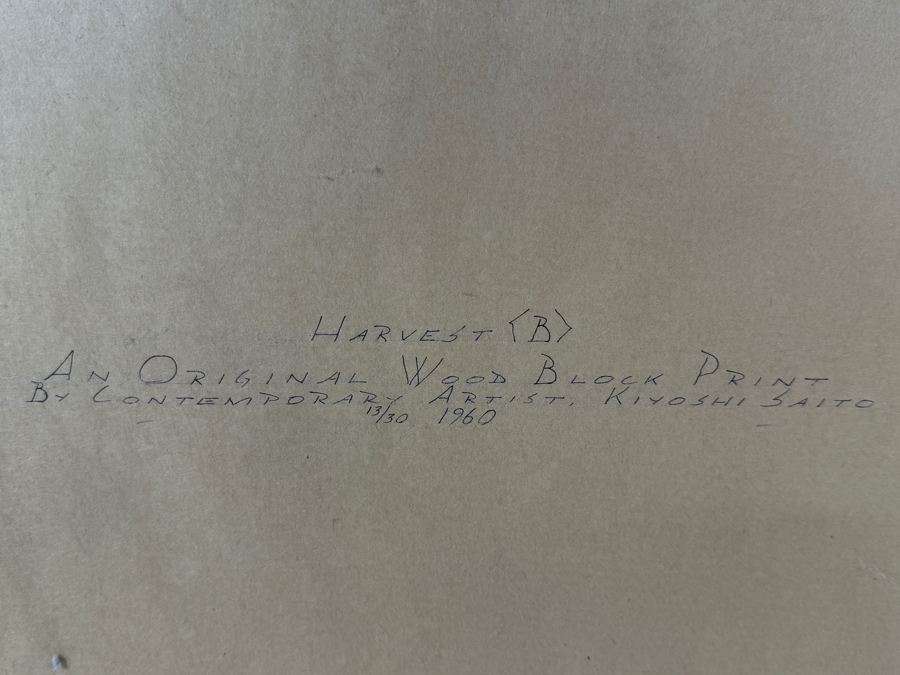 HARVEST <B>
AN ORIGINAL WOOD BLOCK PRINT
BY CONTEMPORARY ARTIST, KIYOSHI SAITO
13/30 1960